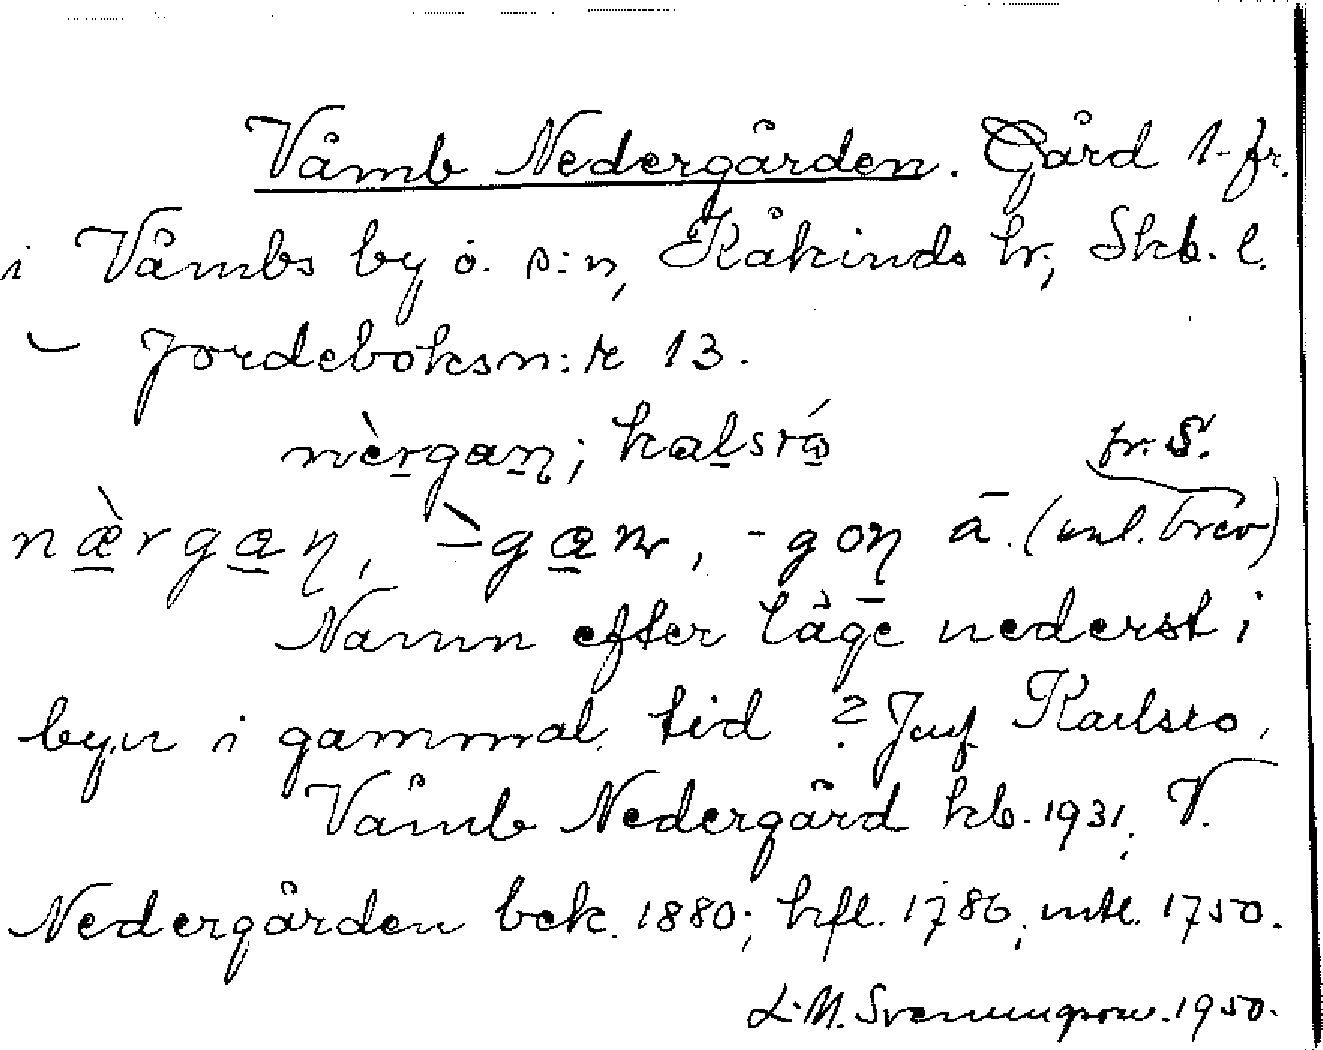 Våmb Nedergården. Gård 1-fr.
i Våmbs by o. s:n, Kåkinds hr, Skb. l.
– Jordeboksn:r 13.
nèrgaṉ; kaḻsró
fr. S.
nærgan, -gan, -gon ā. (enl. brev)
Namn efter läge nederst i
byn i gammal tid ? Jmf Karlsro.
Våmb Nedergård kb. 1931; V.
Nedergården bek. 1880; hfl. 1786; mtl. 1750.
L.M. Svenungsson. 1950.